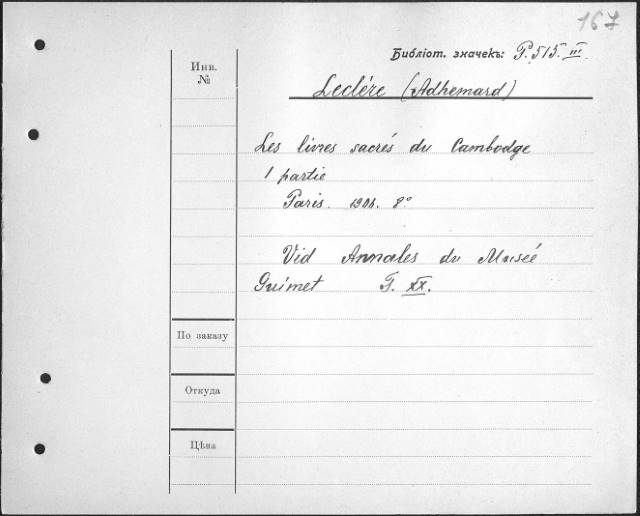 167
Библіот. значекъ: P. 515. III.
Инв. №
Leclére (Adhemard)
Les livres sacrés du Cambodge
1 partie
Paris. 1906. 8°
Vid Annales du Museé
Guimet T. XX.
По заказу
Откуда
Цѣна